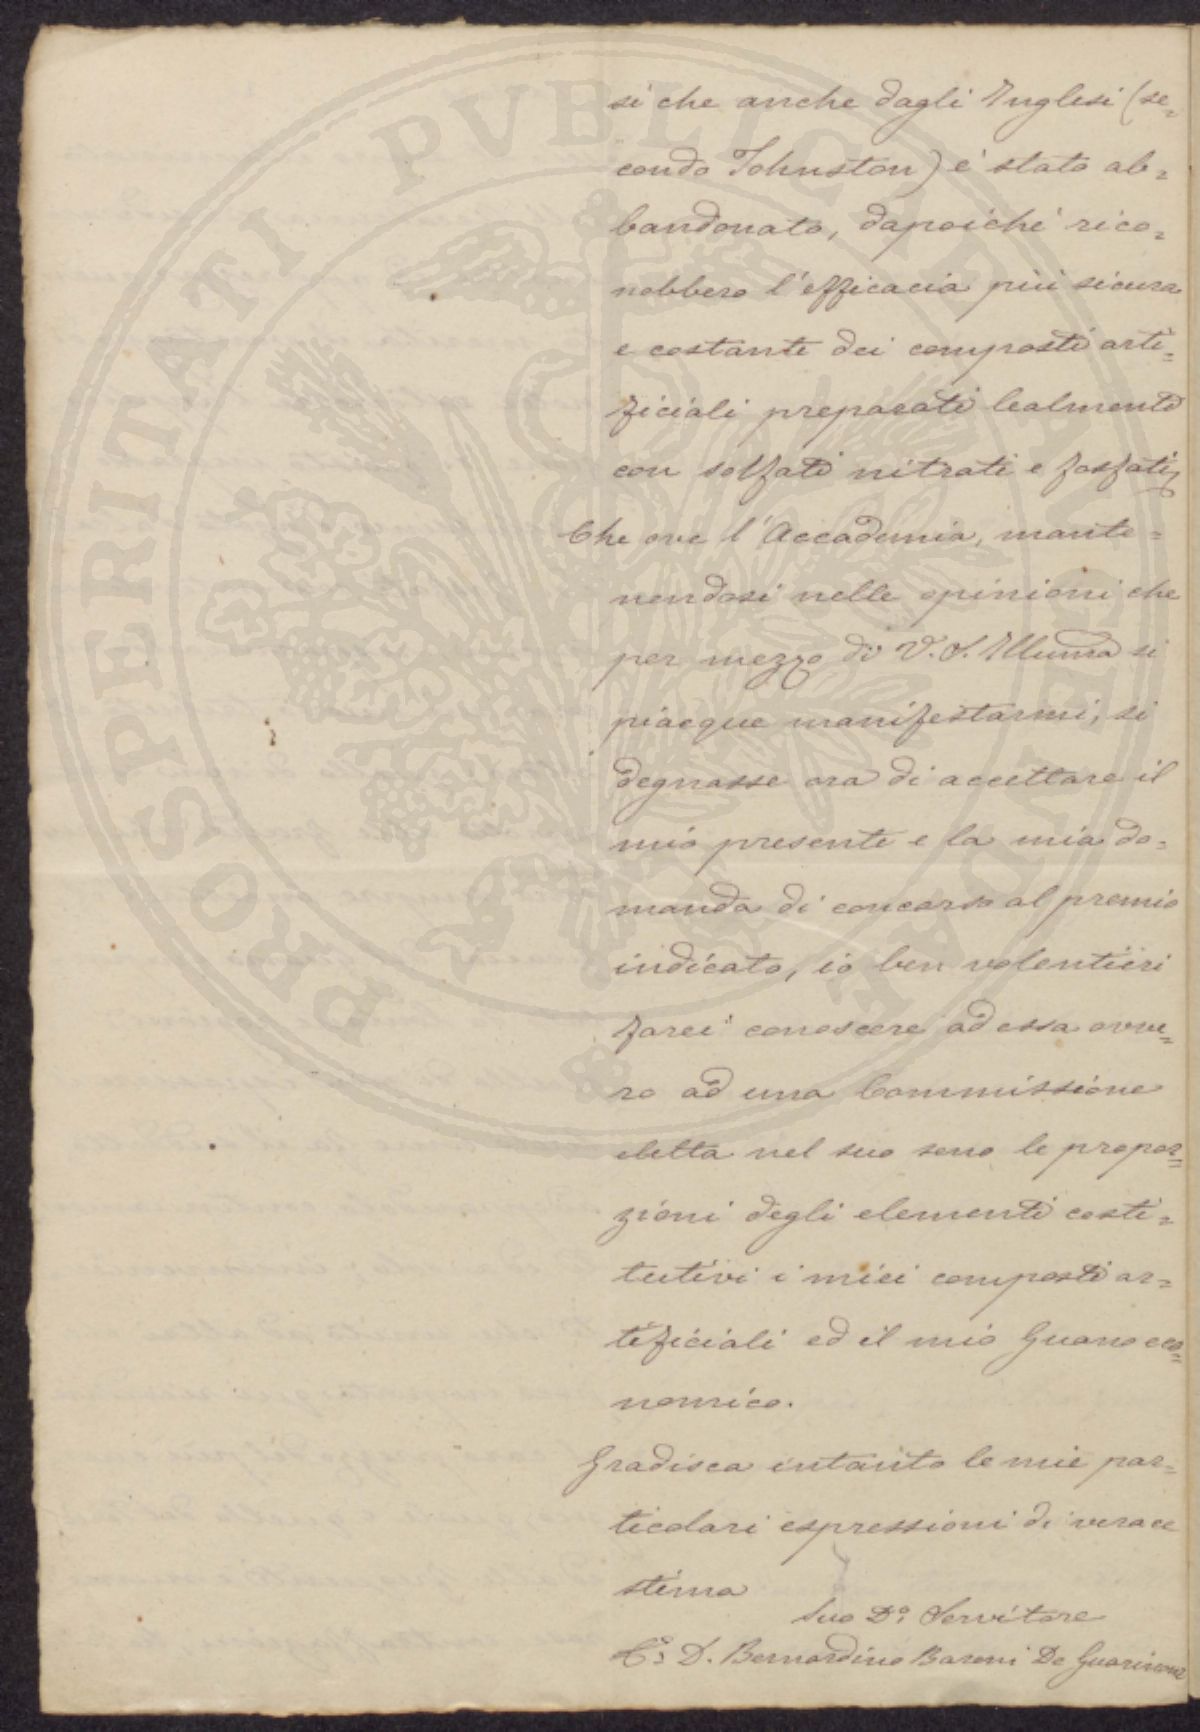 PROSPERITATI PVBLICAE AVGENDAE
si che anche dagli Inglesi (se=
condo Johnston) è stato ab=
bandonato, dapoiché rico=
nobbero l'efficacia più sicura
e costante dei composti arti=
ficiali preparati lealmente
con solfati nitrati e fosfati;
Che ove l'Accademia, mante=
nendosi nelle opinioni che
per mezzo di V. S. Illuma si
piacque manifestarmi, si
degnasse ora di accettare il
mio presente e la mia do=
manda di concorso al premio
indicato, io ben volentieri
farei conoscere ad essa ovve=
ro ad una Commissione
eletta nel suo seno le propor=
zioni degli elementi costi=
tutivi i miei composti ar=
tificiali ed il mio Guano eco=
nomico.
Gradisca intanto le mie par=
ticolari espressioni di verace
stima
Suo Do. Servitore
D. Bernardino Baroni De